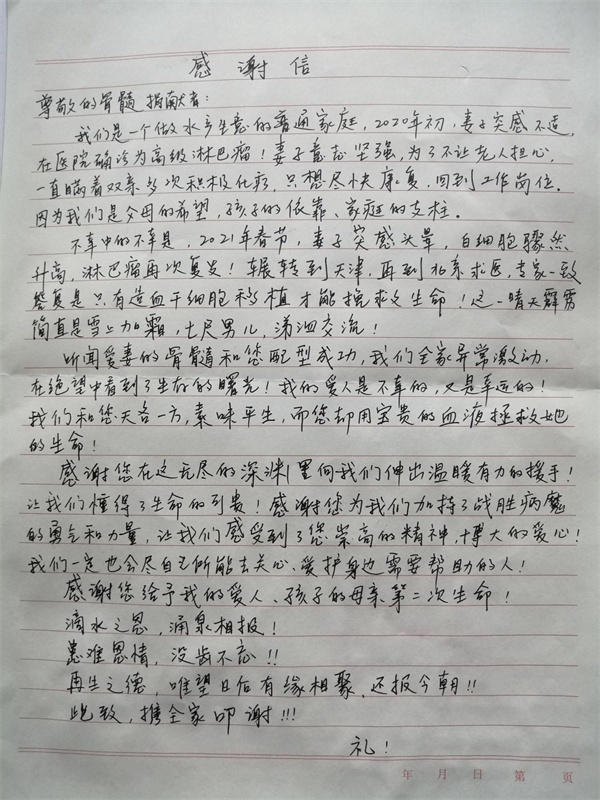 感谢信
尊敬的骨髓捐献者:
我们是一个做水产生意的普通家庭,2020年初,妻子突感不适,
在医院确诊为高级淋巴瘤!妻子意志坚强,为了不让老人担心,
一直瞒着双亲多次积极化疗,只想尽快康复,回到工作岗位.
因为我们是父母的希望,孩子的依靠、家庭的支柱.
不幸中的不幸是,2021年春节,妻子突感头晕,白细胞骤然
升高,淋巴瘤再次复发!辗转到天津,再到北京求医,专家一致
答复是只有造血干细胞移植才能挽救生命!这一晴天霹雳
简直是雪上加霜,七尺男儿,涕泗交流!
听闻爱妻的骨髓和您配型成功,我们全家异常激动.
在绝望中看到了生存的曙光!我的爱人是不幸的,又是幸运的!
我们和您天各一方,素昧平生,而您却用宝贵的血液拯救她
的生命!
感谢您在这无尽的深渊里向我们伸出温暖有力的援手!
让我们懂得了生命的可贵!感谢您为我们加持了战胜病魔
的勇气和力量,让我们感受到了您崇高的精神,博大的爱心!
我们一定也会尽自己所能去关心、爱护身边需要帮助的人!
感谢您给予我的爱人、孩子的母亲第二次生命!
滴水之恩,涌泉相报!
患难恩情,没齿不忘!!
再生之德,唯望日后有缘相聚,还报今朝!!
此致,携全家叩谢!!!
礼!
年 月 日 第 页